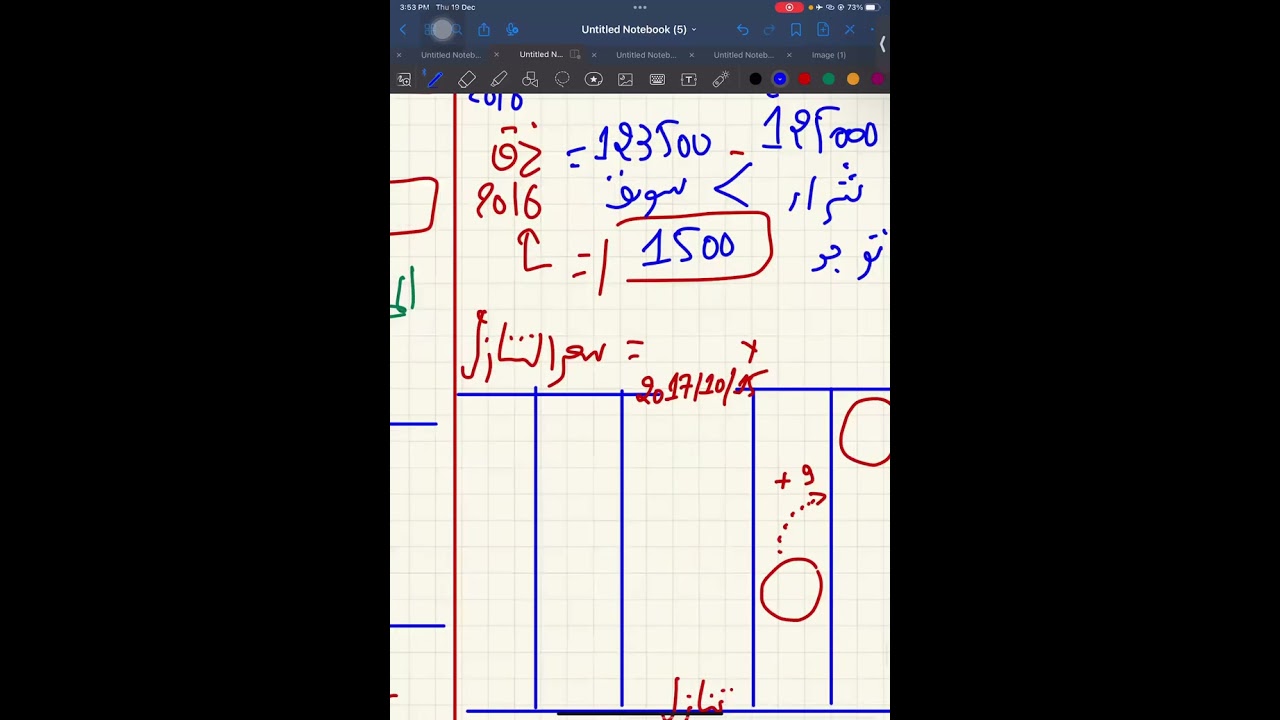 3:53 PM Thu 19 Dec
73%
Untitled Notebook (5)
Untitled Noteb...
Untitled N...
Untitled Noteb...
Untitled Noteb...
Image (1)
= 123500 - 125000
2016
شراء > سوف
= 1500
سعر التنازل =
2017/10/15
+ 9
تنازل